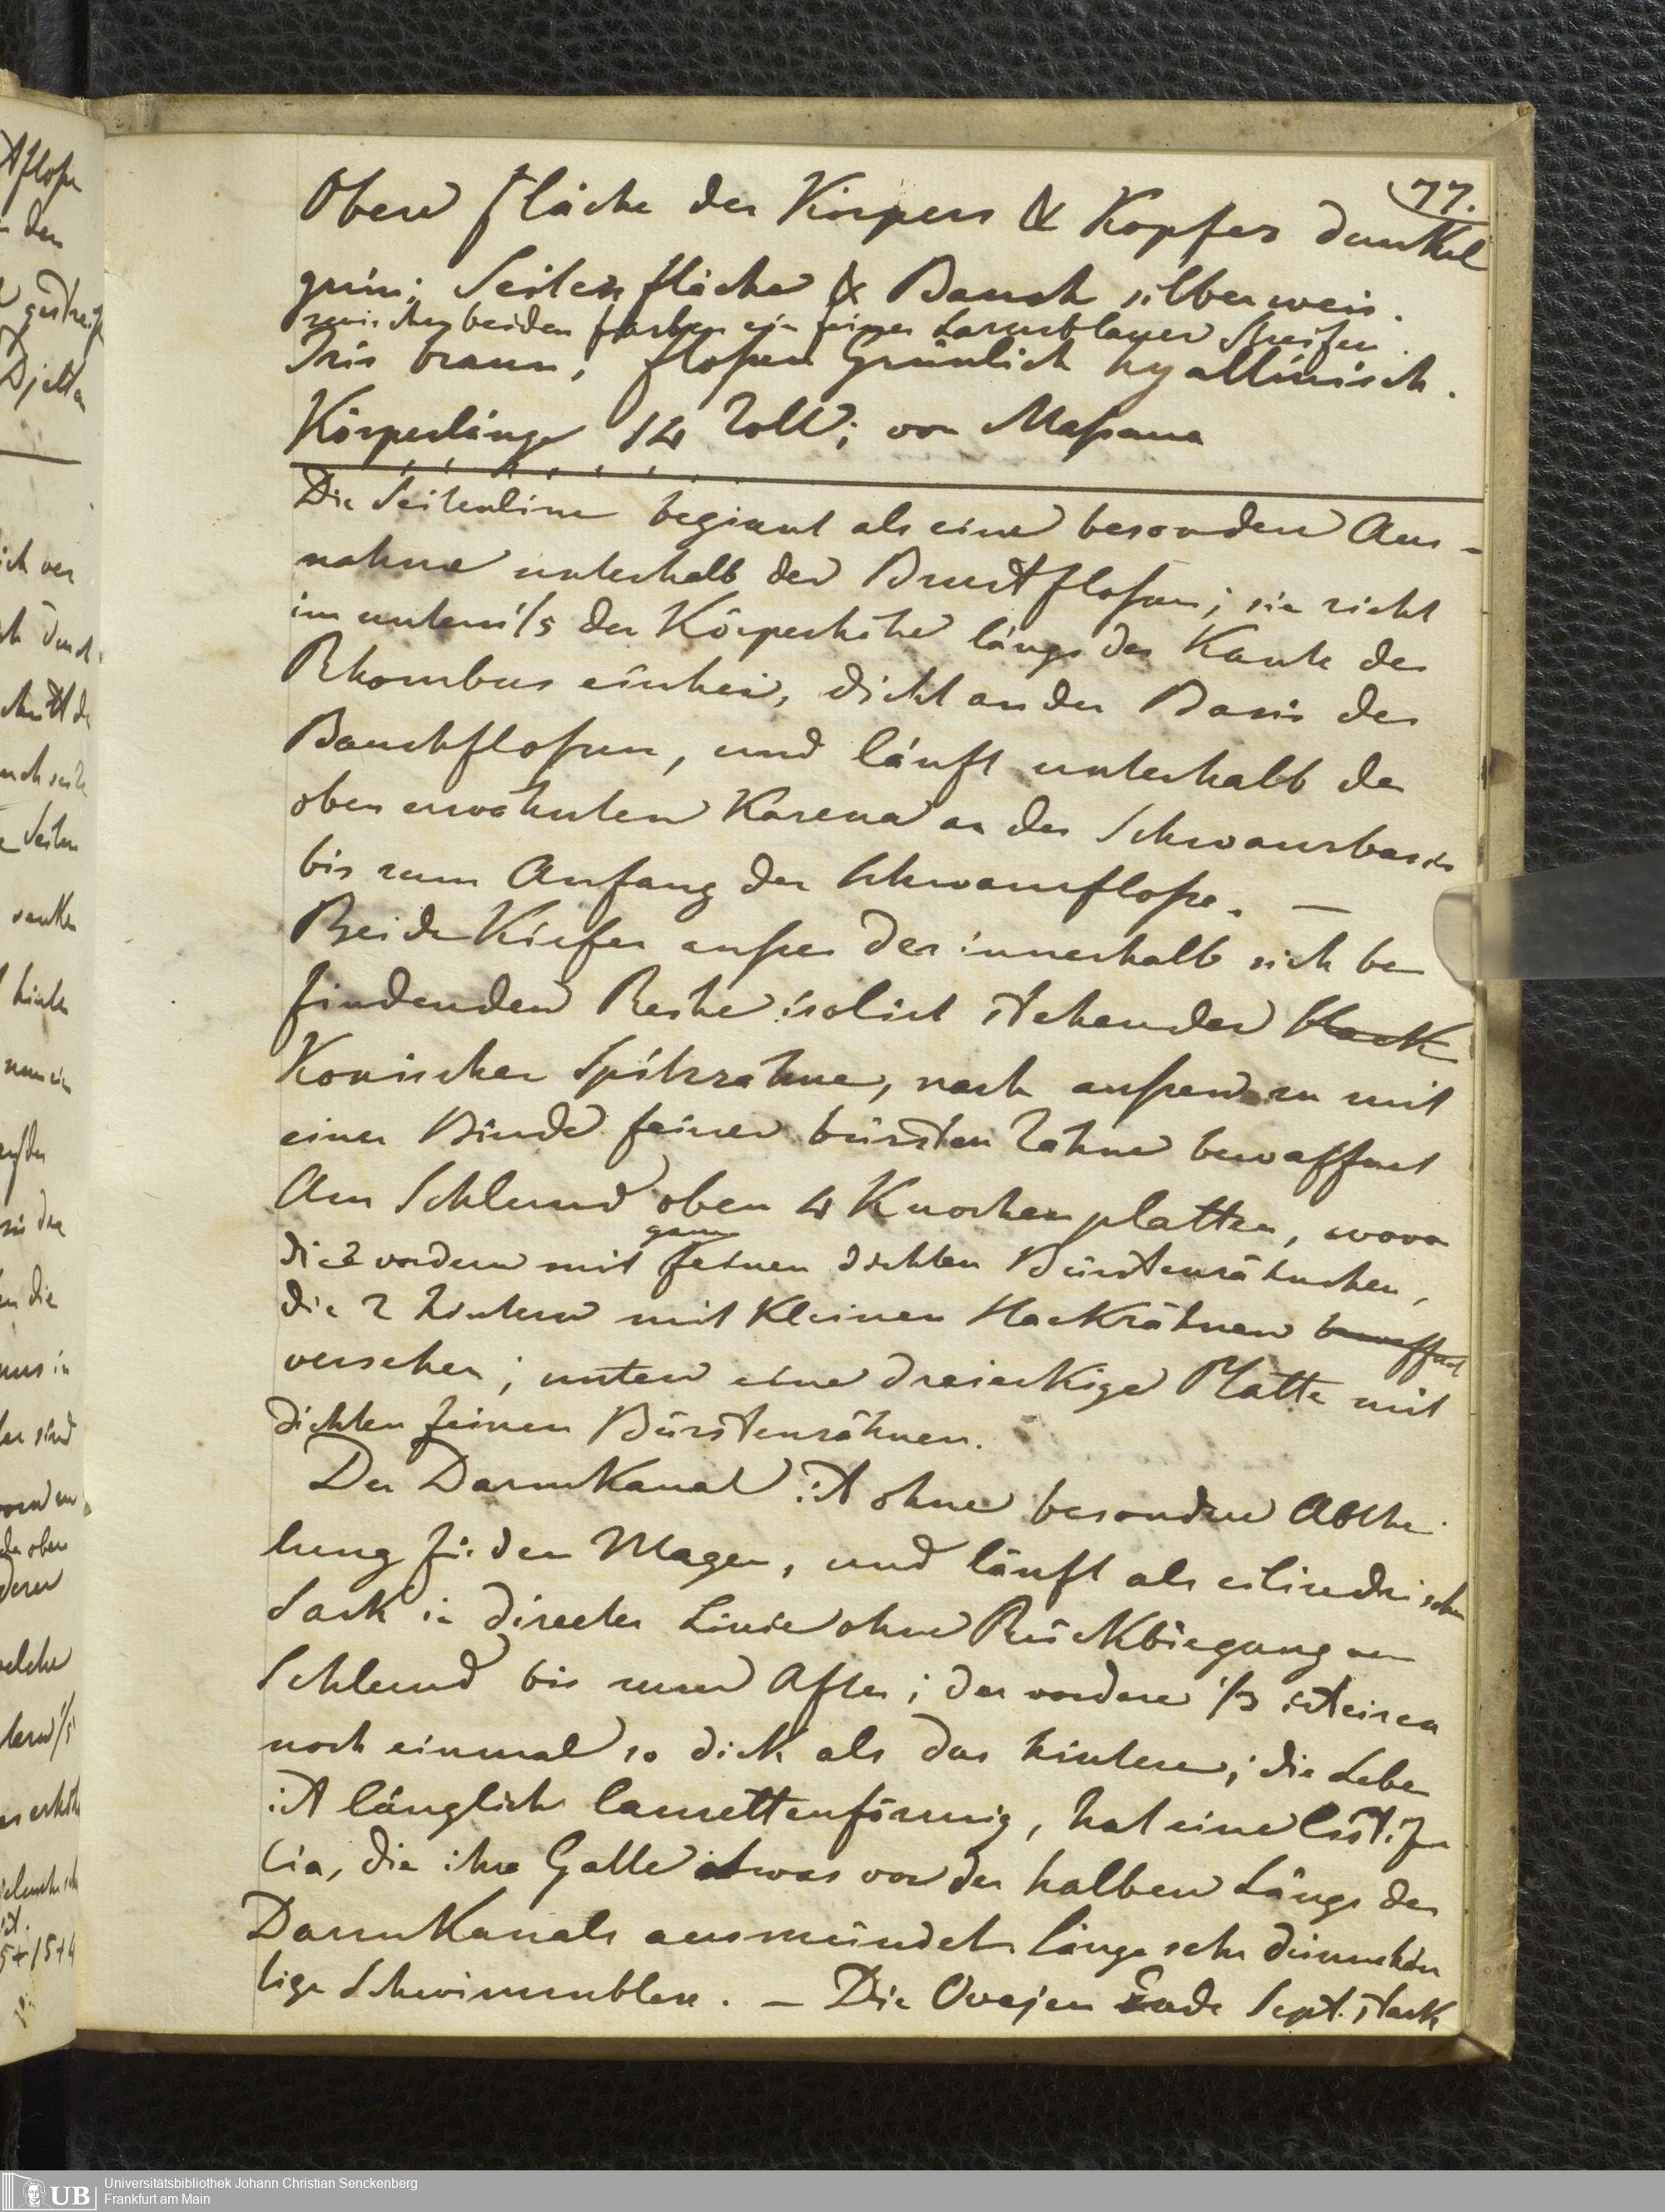 77.
Obere Fläche des Körpers & Kopfes dunkel
grün; Seitenfläche & Bauch silberweis.
zwischen beiden Farben ein feiner Lasurblauer Streifen.
Iris braun; Floßen Grünlich hyallinisch.
Körperlänge 14 Zoll; von Maßaua
Die Seitenlinie beginnt als eine besondere Aus-
nahme unterhalb der Brustfloßen; sie zieht
im untern 1/5 der Körperhöhe längs der Kante des
Rhombus einher, dicht an der Basis der
Bauchfloßen, und läuft unterhalb der
oben erwähnten Karena an der Schwanzbasis
bis zum Anfang der Schwanzfloße. —
Beide Kiefer außer der innerhalb sich be
findenden Reihe isolirt stehender Hack
Konischer Spitzzähne, nach außen zu mit
einer Binde feiner bürsten Zähne bewaffnet
Am Schlund oben 4 Knochenplatten, wovon
ganz
die 2 vordern mit feinen dichten Bürstenzähnchen,
die 2 hintern mit kleinen Hackzähnen bewaffnet
versehen; unten eine dreieckige Platte mit
dichten feinen Bürstenzähnen.
Der Darmkanal ist ohne besondere Abthei
lung für den Magen, und läuft als cilindrischer
Sack in directer Linie ohne Rückbiegung vom
Schlund bis zum After; der vordere 1/3 ist
noch einmal so dick als das hintere; die Leber
ist länglich lanzettenförmig, hat eine
die ihre Galle etwas vor der halben Länge des
Darmkanals ausmündet lange sehr dünnhäu
tige Schwimmblase. — Die Ovajen Ende Sept. stark
Afloße
den
gestreift
Djetta
ich ver
durch
Seiten
hinter
auf der
die
sind
oben
welche
15+4
UB
Universitätsbibliothek Johann Christian Senckenberg
Frankfurt am Main